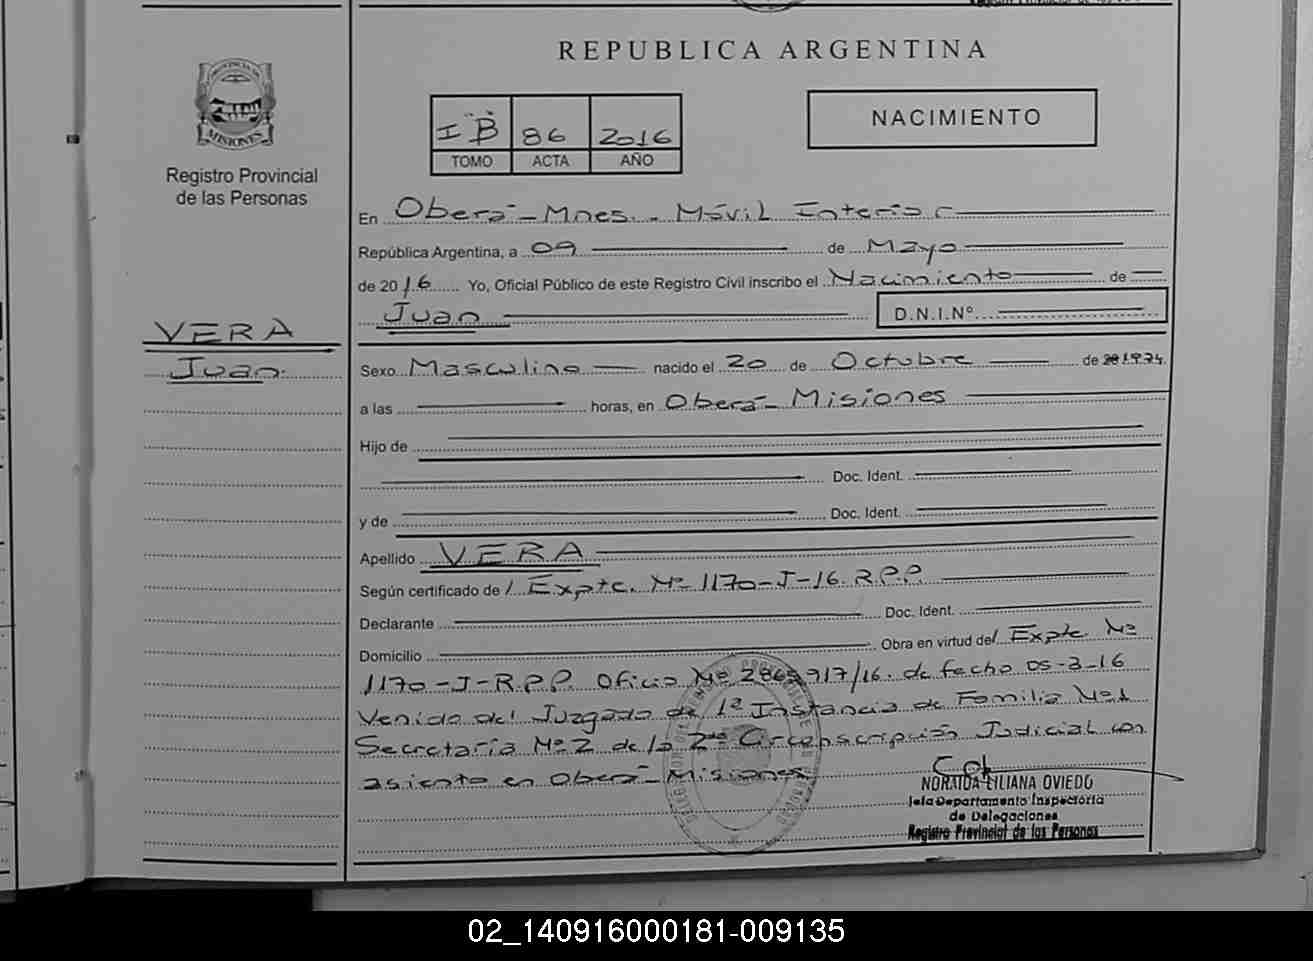 REPUBLICA ARGENTINA
PROVINCIA DE
MISIONES
Registro Provincial
de las Personas
I B 86 2016
TOMO ACTA AÑO
NACIMIENTO
En Oberá - Mnes. - Móvil Interior
República Argentina, a 09 de Mayo
de 2016 Yo, Oficial Público de este Registro Civil inscribo el Nacimiento de
Juan D.N.I.Nº
VERA
Juan.
Sexo Masculino nacido el 20 de Octubre de 1974.
a las horas, en Oberá - Misiones
Hijo de
Doc. Ident.
y de Doc. Ident.
Apellido VERA
Según certificado de / Expte. Nº 1170-J-16. R.P.P.
Declarante Doc. Ident.
Domicilio Obra en virtud de/ Expte. Nº
1170-J-R.P.P. Oficio Nº /16. de fecha 05-3-16
Venido del Juzgado de 1ª Instancia de Familia Nº1
Secretaría Nº2 de la 2da Circunscripción Judicial con
asiento en Oberá - Misiones
NORAIDA LILIANA OVIEDO
Jefa Departamento Inspectoría
de Delegaciones
Registro Provincial de las Personas
02_140916000181-009135